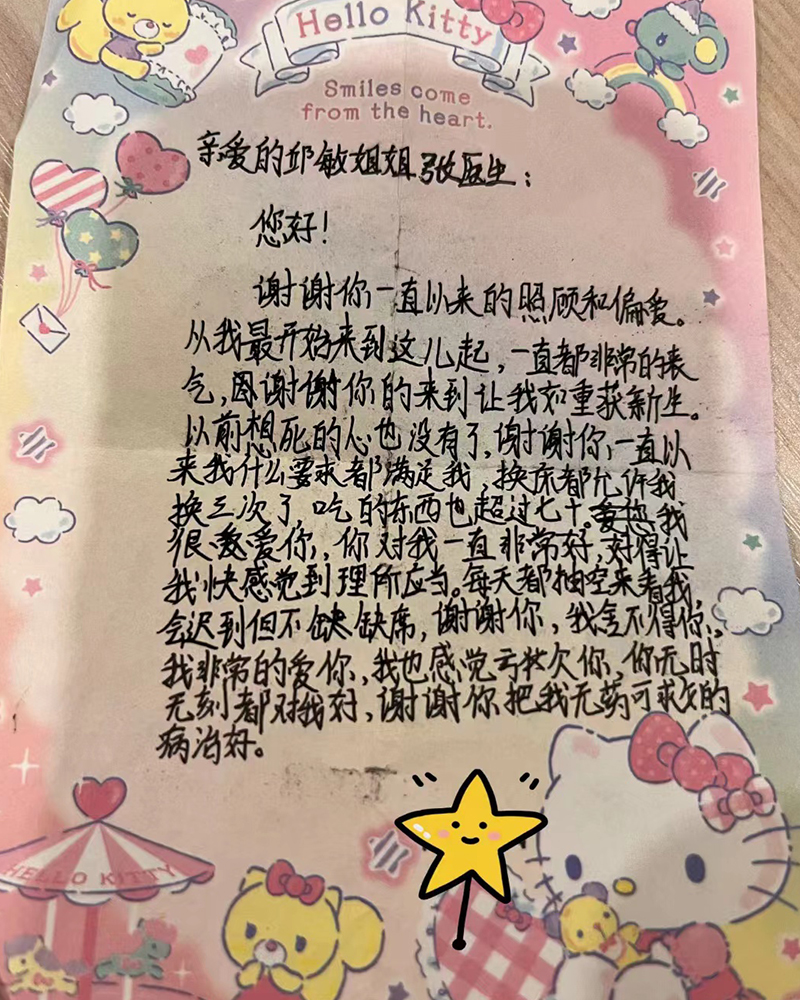 Hello Kitty
Smiles come
from the heart.
亲爱的邱敏姐姐张医生：
您好！
谢谢你一直以来的照顾和偏爱。
从我最开始来到这儿起，一直都非常的丧
气，因谢谢你的来到让我如重获新生。
以前想死的心也没有了，谢谢你，一直以
来我什么要求都满足我，换床都允许我
换三次了，吃的东西也超过七十。我
很爱你，你对我一直非常好，好得让
我快感觉到理所应当。每天都抽空来看我
会迟到但不缺缺席，谢谢你，我舍不得你，
我非常的爱你，我也感觉亏欠你，你无时
无刻都对我好，谢谢你把我无药可救的
病治好。
HELLO KITTY